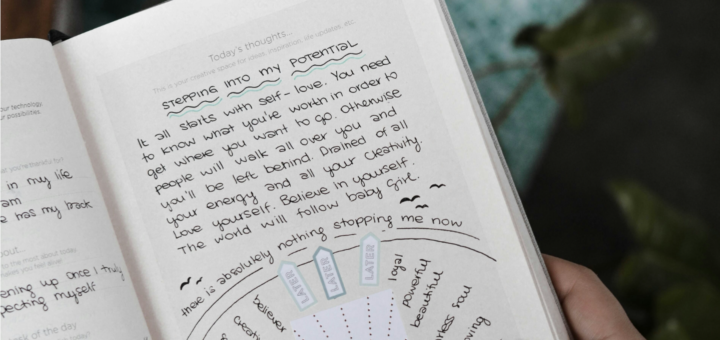 your technology
ur possibilities.
in my life
am
e has my back
ening up once I truly
pecting myself
of the day
Today's thoughts...
This is your creative space for ideas, inspiration, life updates, etc.
STEPPING INTO MY POTENTIAL
It all starts with self-love. You need
to know what you're worth in order to
get where you want to go. Otherwise
people will walk all over you and
you'll be left behind. Drained of all
your energy and all your creativity.
Love yourself. Believe in yourself.
The world will follow baby girl.
there is absolutely nothing stopping me now
LATER
LATER
LATER
believer
loyal
powerful
beautiful
soul